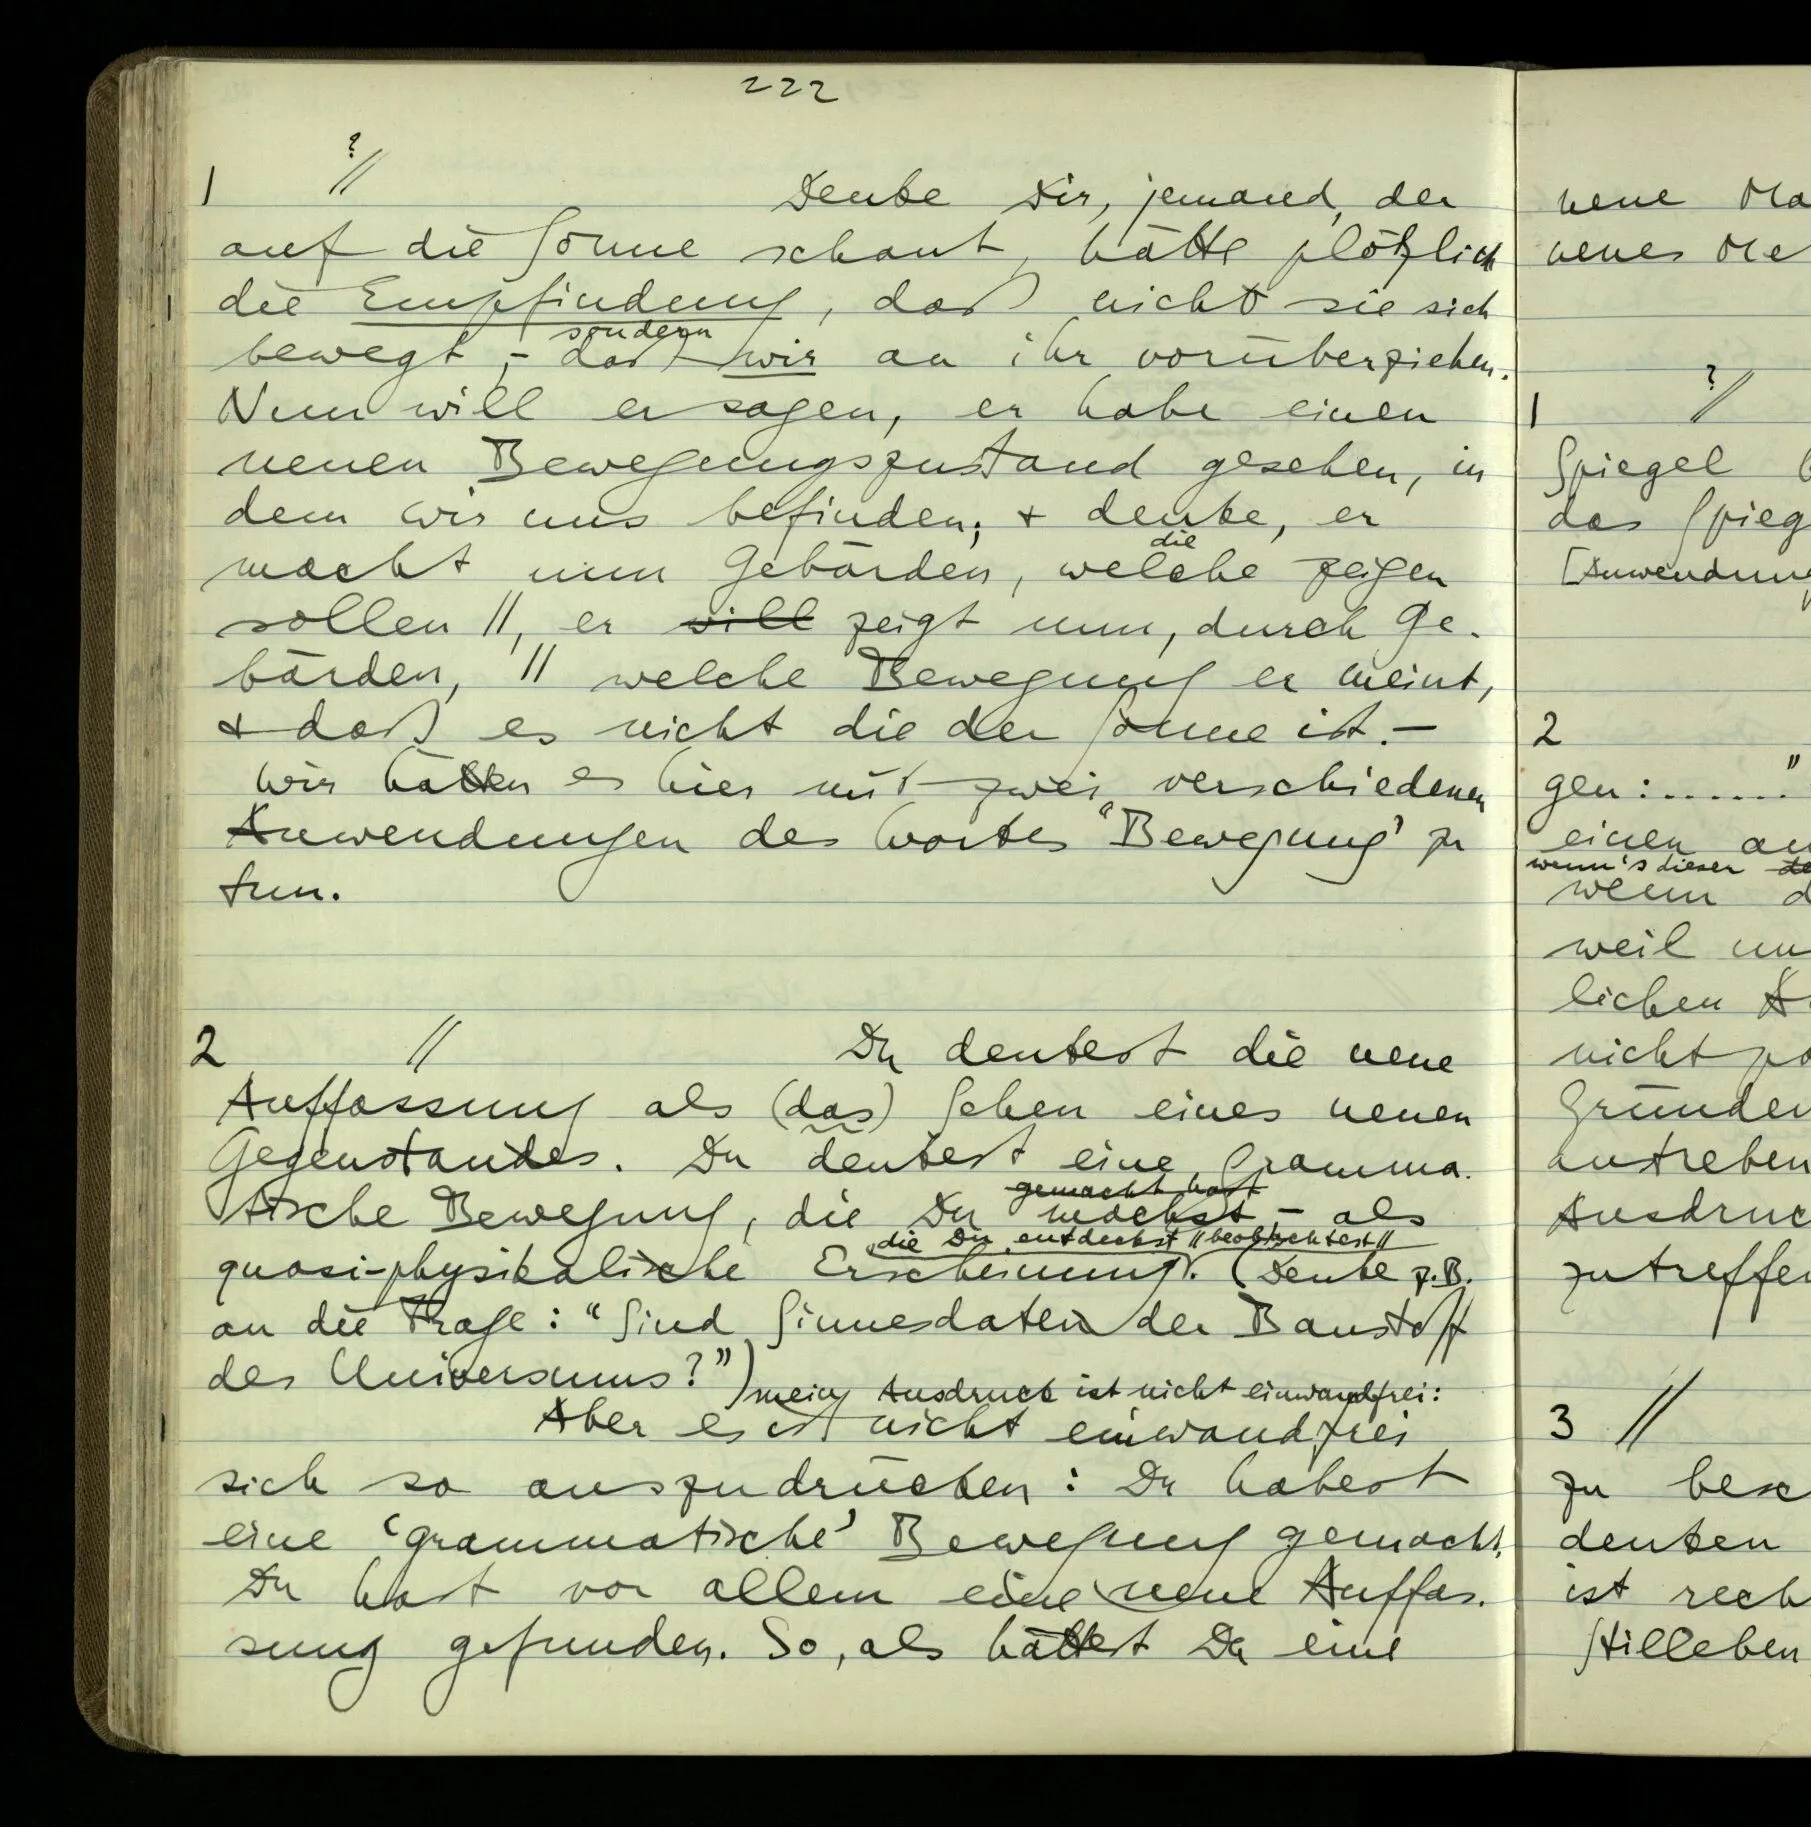 222
1 ?//
Denke Dir, jemand, der
auf die Sonne schaut, hätte plötzlich
die Empfindung, daß nicht sie sich
sondern
bewegt, – daß wir an ihr vorüberziehen.
Nun will er sagen, er habe einen
neuen Bewegungszustand gesehen, in
dem wir uns befinden; + denke, er
die
macht nun Gebärden, welche zeigen
sollen //, er will zeigt nun, durch Ge-
bärden, // welche Bewegung er meint,
+ daß es nicht die der Sonne ist. –
Wir hätten es hier mit zwei verschiedenen
Anwendungen des Wortes “Bewegung” zu
tun.
2 //
Du deutest die neue
Auffassung als (das) Sehen eines neuen
Gegenstandes. Du deutest eine gramma-
gemacht hast
tische Bewegung, die Du machst – als
die Du entdeckst // beobachtest //
quasi-physikalische Erscheinung. (Denke z.B.
an die Frage: “Sind Sinnesdaten der Baustoff
des Universums?”)
mein Ausdruck ist nicht einwandfrei:
Aber es ist nicht einwandfrei
sich so auszudrücken: Du habest
eine ‘grammatische’ Bewegung gemacht.
Du hast vor allem eine neue Auffas-
sung gefunden. So, als hättest Du eine
neue Ma
neues Me
1 ?//
Spiegel
das Spieg
[Anwendung
2
gen: . . . . . . ”
einen au
wenn's dieser
wenn d
weil un
lichen
nicht
Gründen
antreben
Ausdruc
zutreffen
3 //
zu besc
denken
ist rech
Stilleben